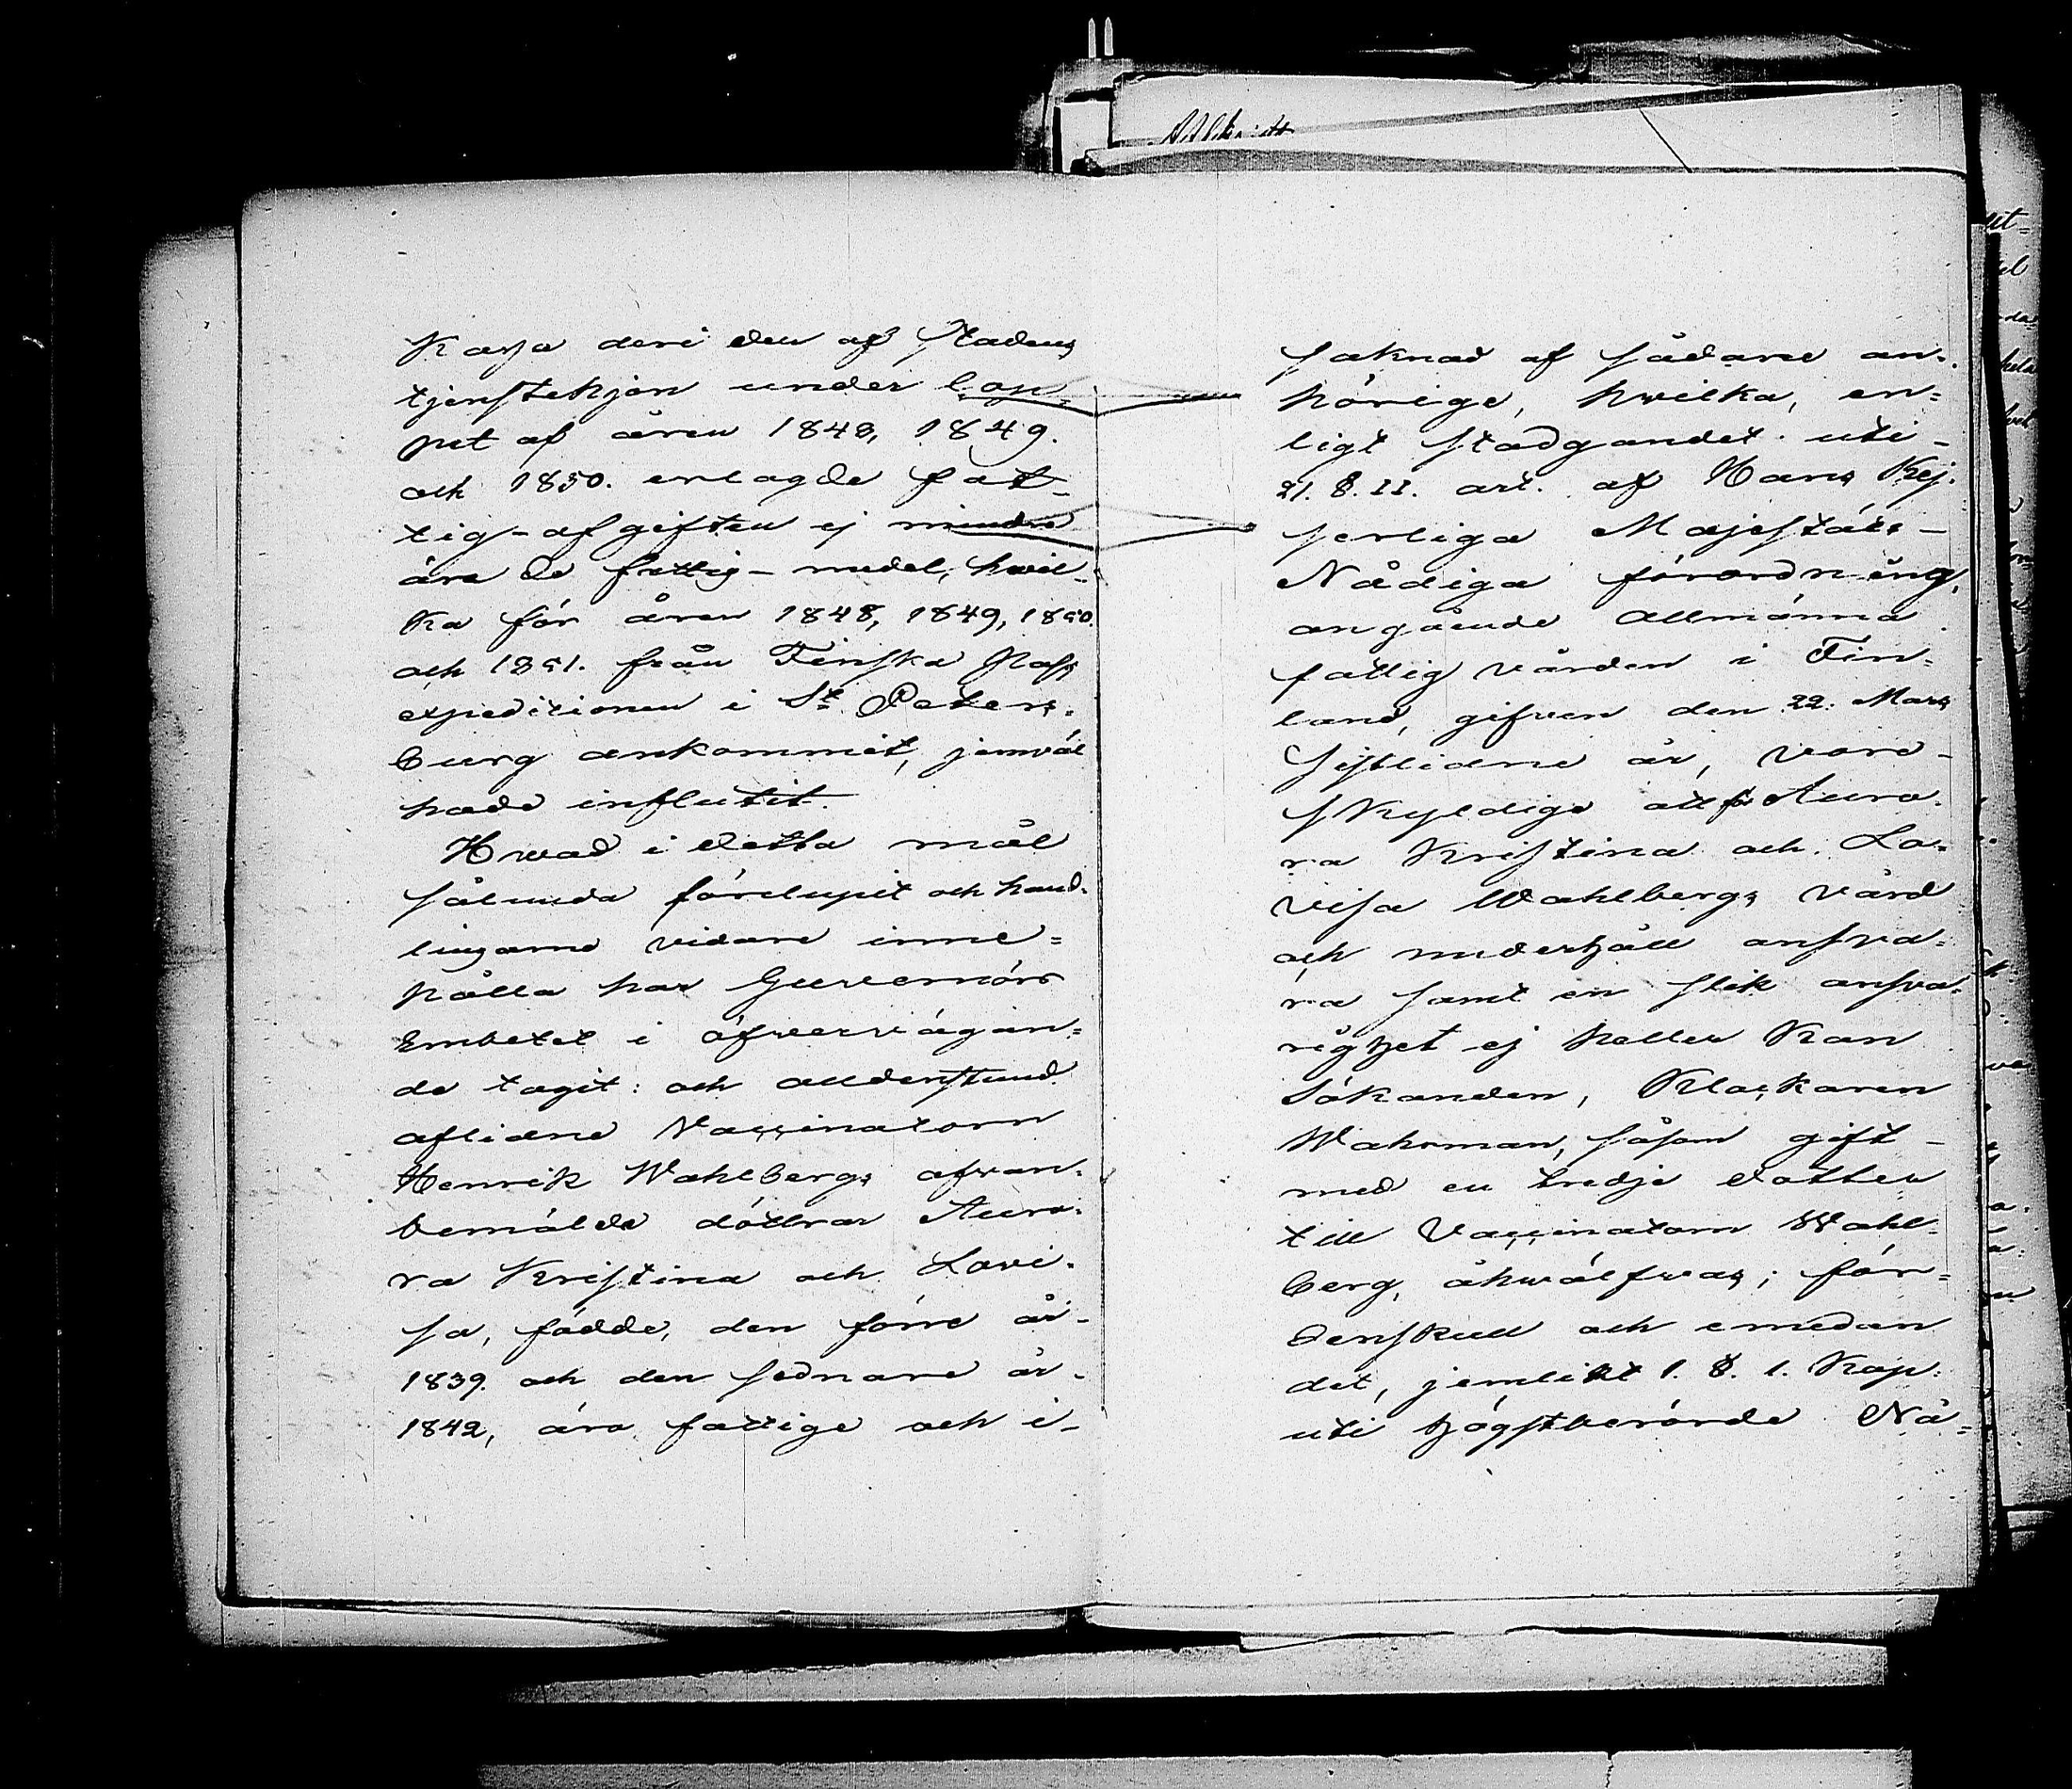 Kassa deri den af Stadens
tjenstehjon under lop¬
pet af åren 1848, 1849.
och 1850. erlagde fat¬
tig-afgiften ej mindre
än de fattig-medel, hvil¬
ka för åren 1848, 1849, 1850.
och 1851. från Finska Pass
expeditionen i S:t Peters¬
burg ankommit, jemväl
hade influtit.
Hvad i detta mål
sålunda förelupit och hand¬
lingarne vidare inne¬
hålla har Guvernörs
Embetet i öfvervägan¬
de tagit: och alldenstund
aflidne Vaccinatorn
Henrik Wahlbergs ofvan¬
bemälde döttrar Auro¬
ra Kristina och Lovi¬
sa, födde, den förre år
1839. och den sednare år
1842, äro fattige och i
saknad af sådane an¬
hörige, hvilka, en¬
ligt stadgandet uti
21. §. II. art. af Hans Kej¬
serliga Majestäts
Nådiga förordning,
angående allmänna
fattigvården i Fin¬
land, gifven den 22. Mars
sistlidne år, vore
skyldige att för Auro¬
ra Kristina och Lo¬
visa Wahlbergs vård
och underhåll ansva¬
ra samt en slik ansva¬
righet ej heller kan
sökanden, Klockaren
Wahrman, såsom gift
med en tredje dotter
till Vaccinatorn Wahl¬
berg, åhvälfvas; för¬
denskull och emedan
det, jemlikt 1. §. 1. Kap.
uti högstberörde Nå¬